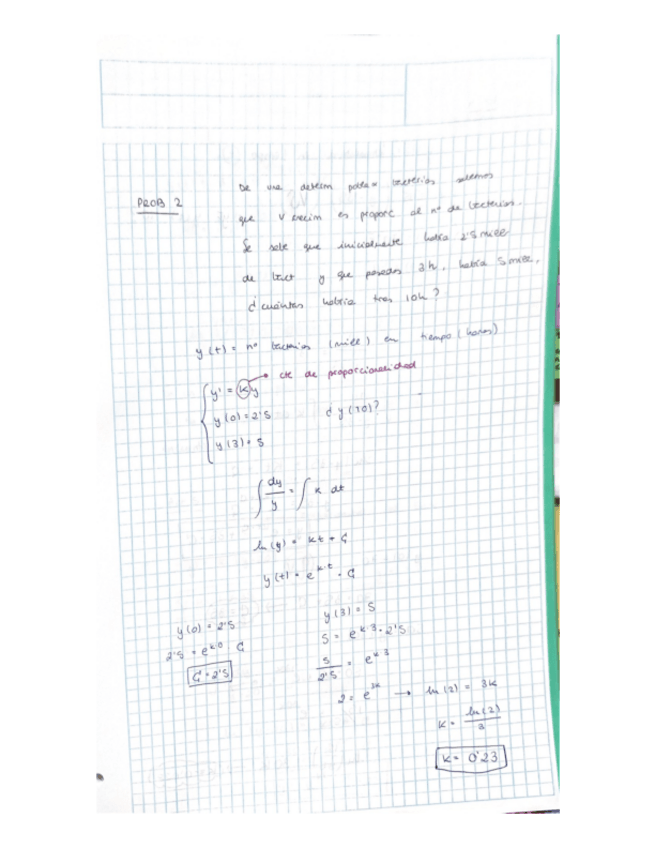 PROB 2
De una determ poblac bacterias sabemos
que V crecim es proporc al nº de bacterias.
Se sabe que inicialmente había 2'5 miles
de bact y que pasadas 3h, había 5 miles,
¿cuántas habría tras 10h?
y(t) = nº bacterias (miles) en tiempo (horas)
→ cte de proporcionalidad
y' = k y
y(0) = 2'5 ¿y(10)?
y(3) = 5
∫ dy/y = ∫ k dt
ln(y) = kt + C
y(t) = e^{k·t} · C
y(0) = 2'5
2'5 = e^{k·0} C
C = 2'5
y(3) = 5
5 = e^{k·3} · 2'5
5/2'5 = e^{k·3}
2 = e^{3k} → ln(2) = 3k
k = ln(2)/3
k = 0'23